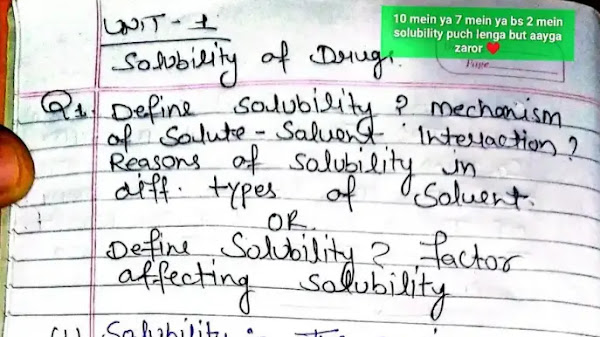 UNIT - 1
Solubility of Drugs.
10 mein ya 7 mein ya bs 2 mein
solubility puch lenga but aayga
zaror ❤️
Page
Q1. Define solubility ? mechanism
of Solute - Solvent Interaction ?
Reasons of solubility in
diff. types of Solvent.
OR
Define Solubility ? factor
affecting solubility
(1) Solubility :-